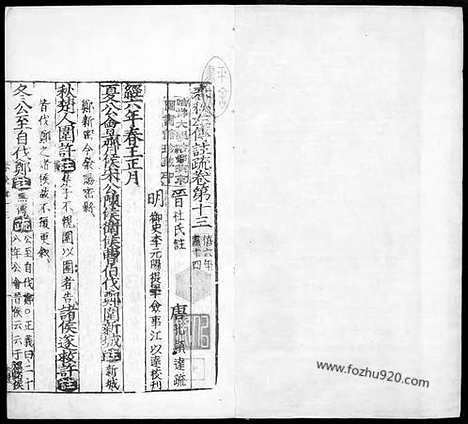 春秋左傳註疏卷第十三
僖六年
盡十四
晉 杜氏 註
唐 孔穎達 疏
明 御史李元陽提學僉事江以達校刊
經六年春王正月
夏公會齊侯宋公陳侯衛侯曹伯伐鄭圍新城 註 新城
鄭新密今滎陽密縣
秋楚人圍許 註 楚子不親圍以圍者告 諸侯遂救許 註
皆伐鄭之諸侯故不復更叙
冬公至自伐鄭 註 無傳 疏 公至自伐鄭○正義曰二十
八年公會晉侯云云于
www.fozhu920.com